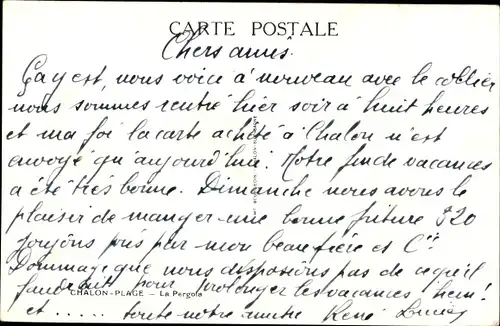 CARTE POSTALE
Chers amis.
Ça y est, nous voici à nouveau avec le collier
nous sommes rentré hier soir à huit heures
et ma foi la carte acheté à Chalon n'est
envoyé qu'aujourd'hui. Notre fin de vacances
a été très bonne. Dimanche nous avons le
plaisir de manger une bonne friture 320
goujons pris par mon beau frère et Cie
Dommage que nous disposions pas de ce qu'il
faudrait pour prolonger les vacances hein!
CHALON-PLAGE — La Pergola
et ..... toute notre René